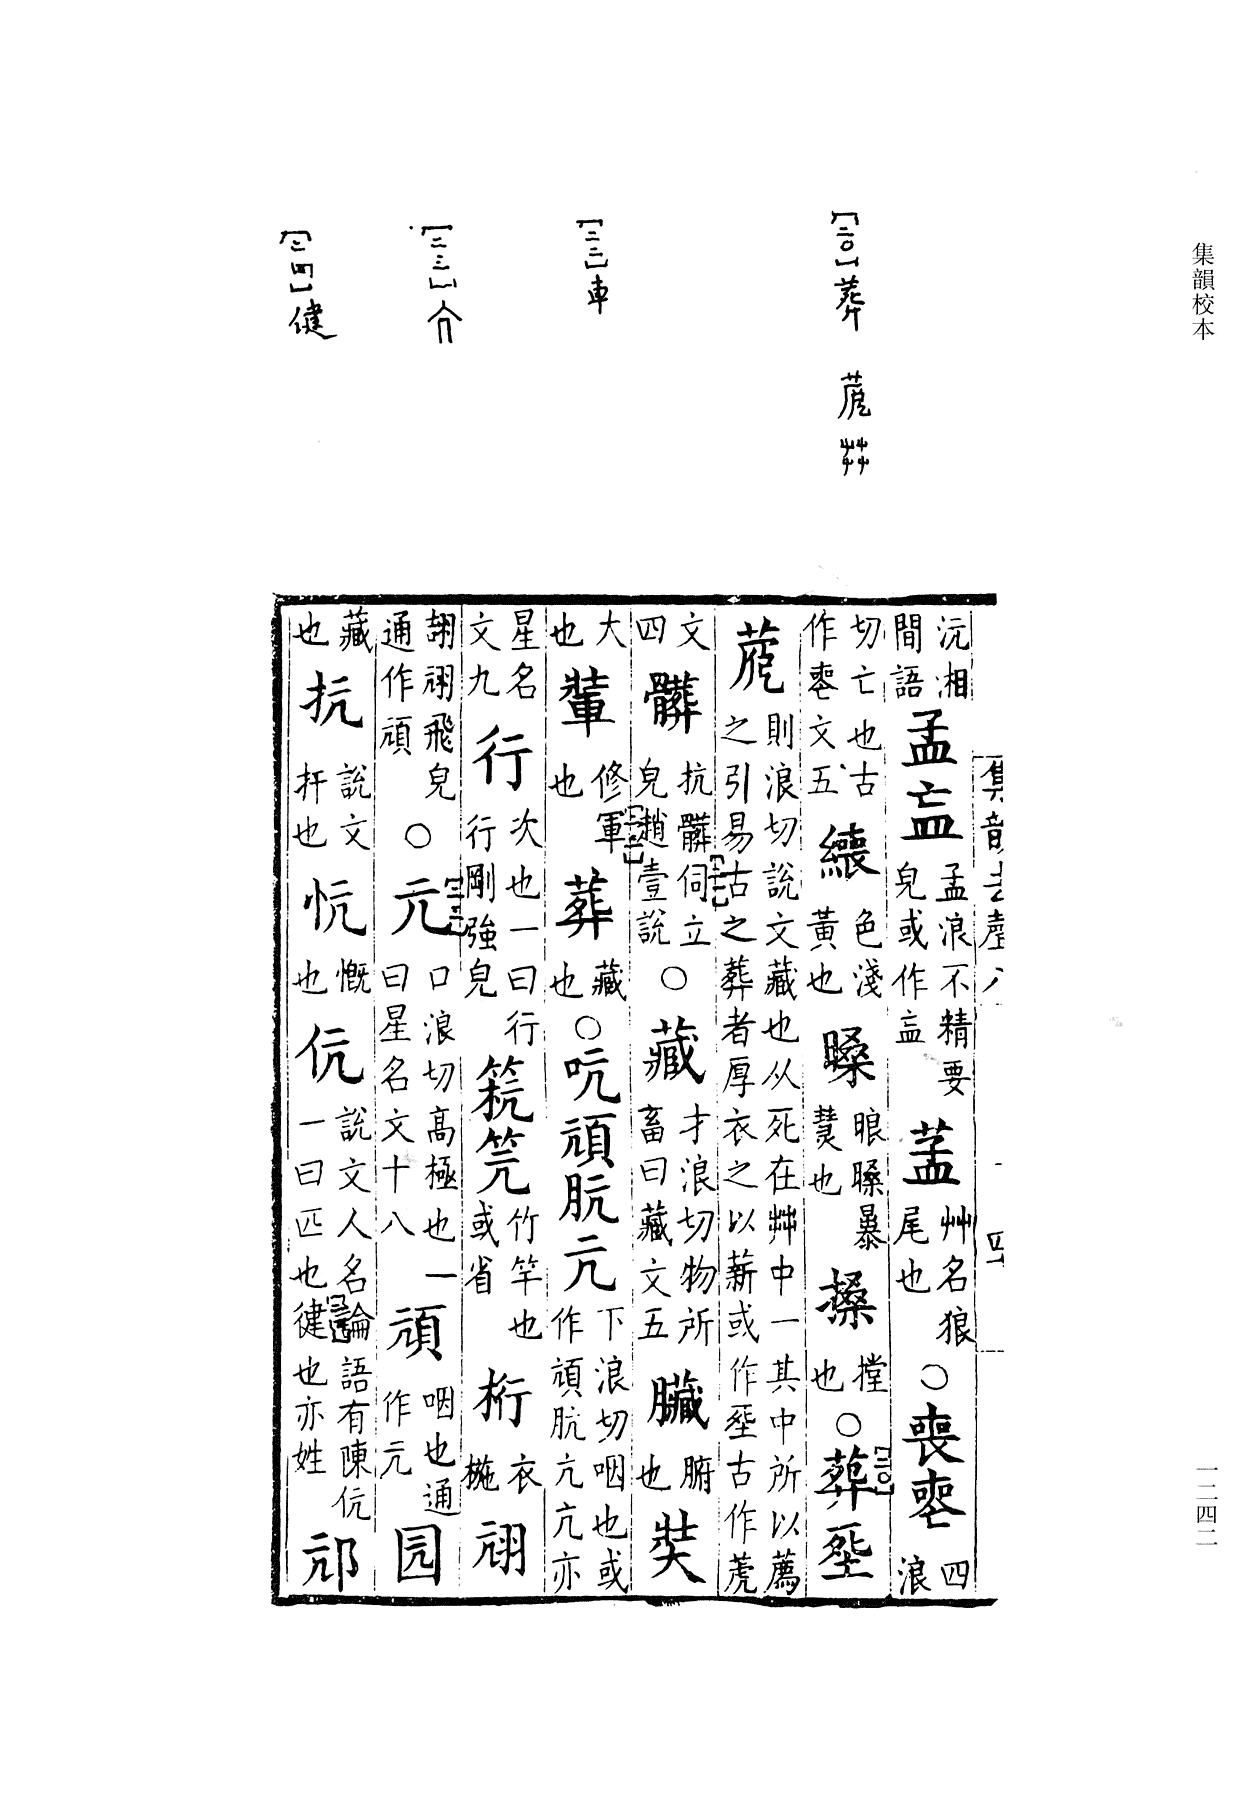 集韻校本
一二四二
[二〇]葬 𦻏 茻
[二二]車
[二三]亣
[二四]健
集韻去聲八 四
沅湘間語 孟㝑 孟浪不精要皃或作㝑 䓝 艸名狼尾也 〇喪𠷔 四浪
切亡也古作𠷔文五 𦆄 色淺黃也 㬤 㫰㬤暴熭也 搡 摚也 〇葬[二〇]塟
𦻏 則浪切說文藏也从死在茻中一其中所以薦之引易古之葬者厚衣之以薪或作塟古作𦻏
文四 髒 抗髒伺[二一]立皃趙壹說 〇藏 才浪切物所畜曰藏文五 臓 腑也 奘
大也 輂 修軍[二二]也 葬 藏也 〇吭頏肮亢 下浪切咽也或作頏肮亢亢亦
星名文九 行 次也一曰行行剛強皃 䈉笐 竹竿也或省 桁 衣椸 翃
翓翃飛皃通作頏 〇亢[二三] 口浪切高極也一曰星名文十八 頏 咽也通作亢 园
藏也 抗 說文扞也 忼 慨也 伉 說文人名論語有陳伉一曰匹也健[二四]也亦姓 邟